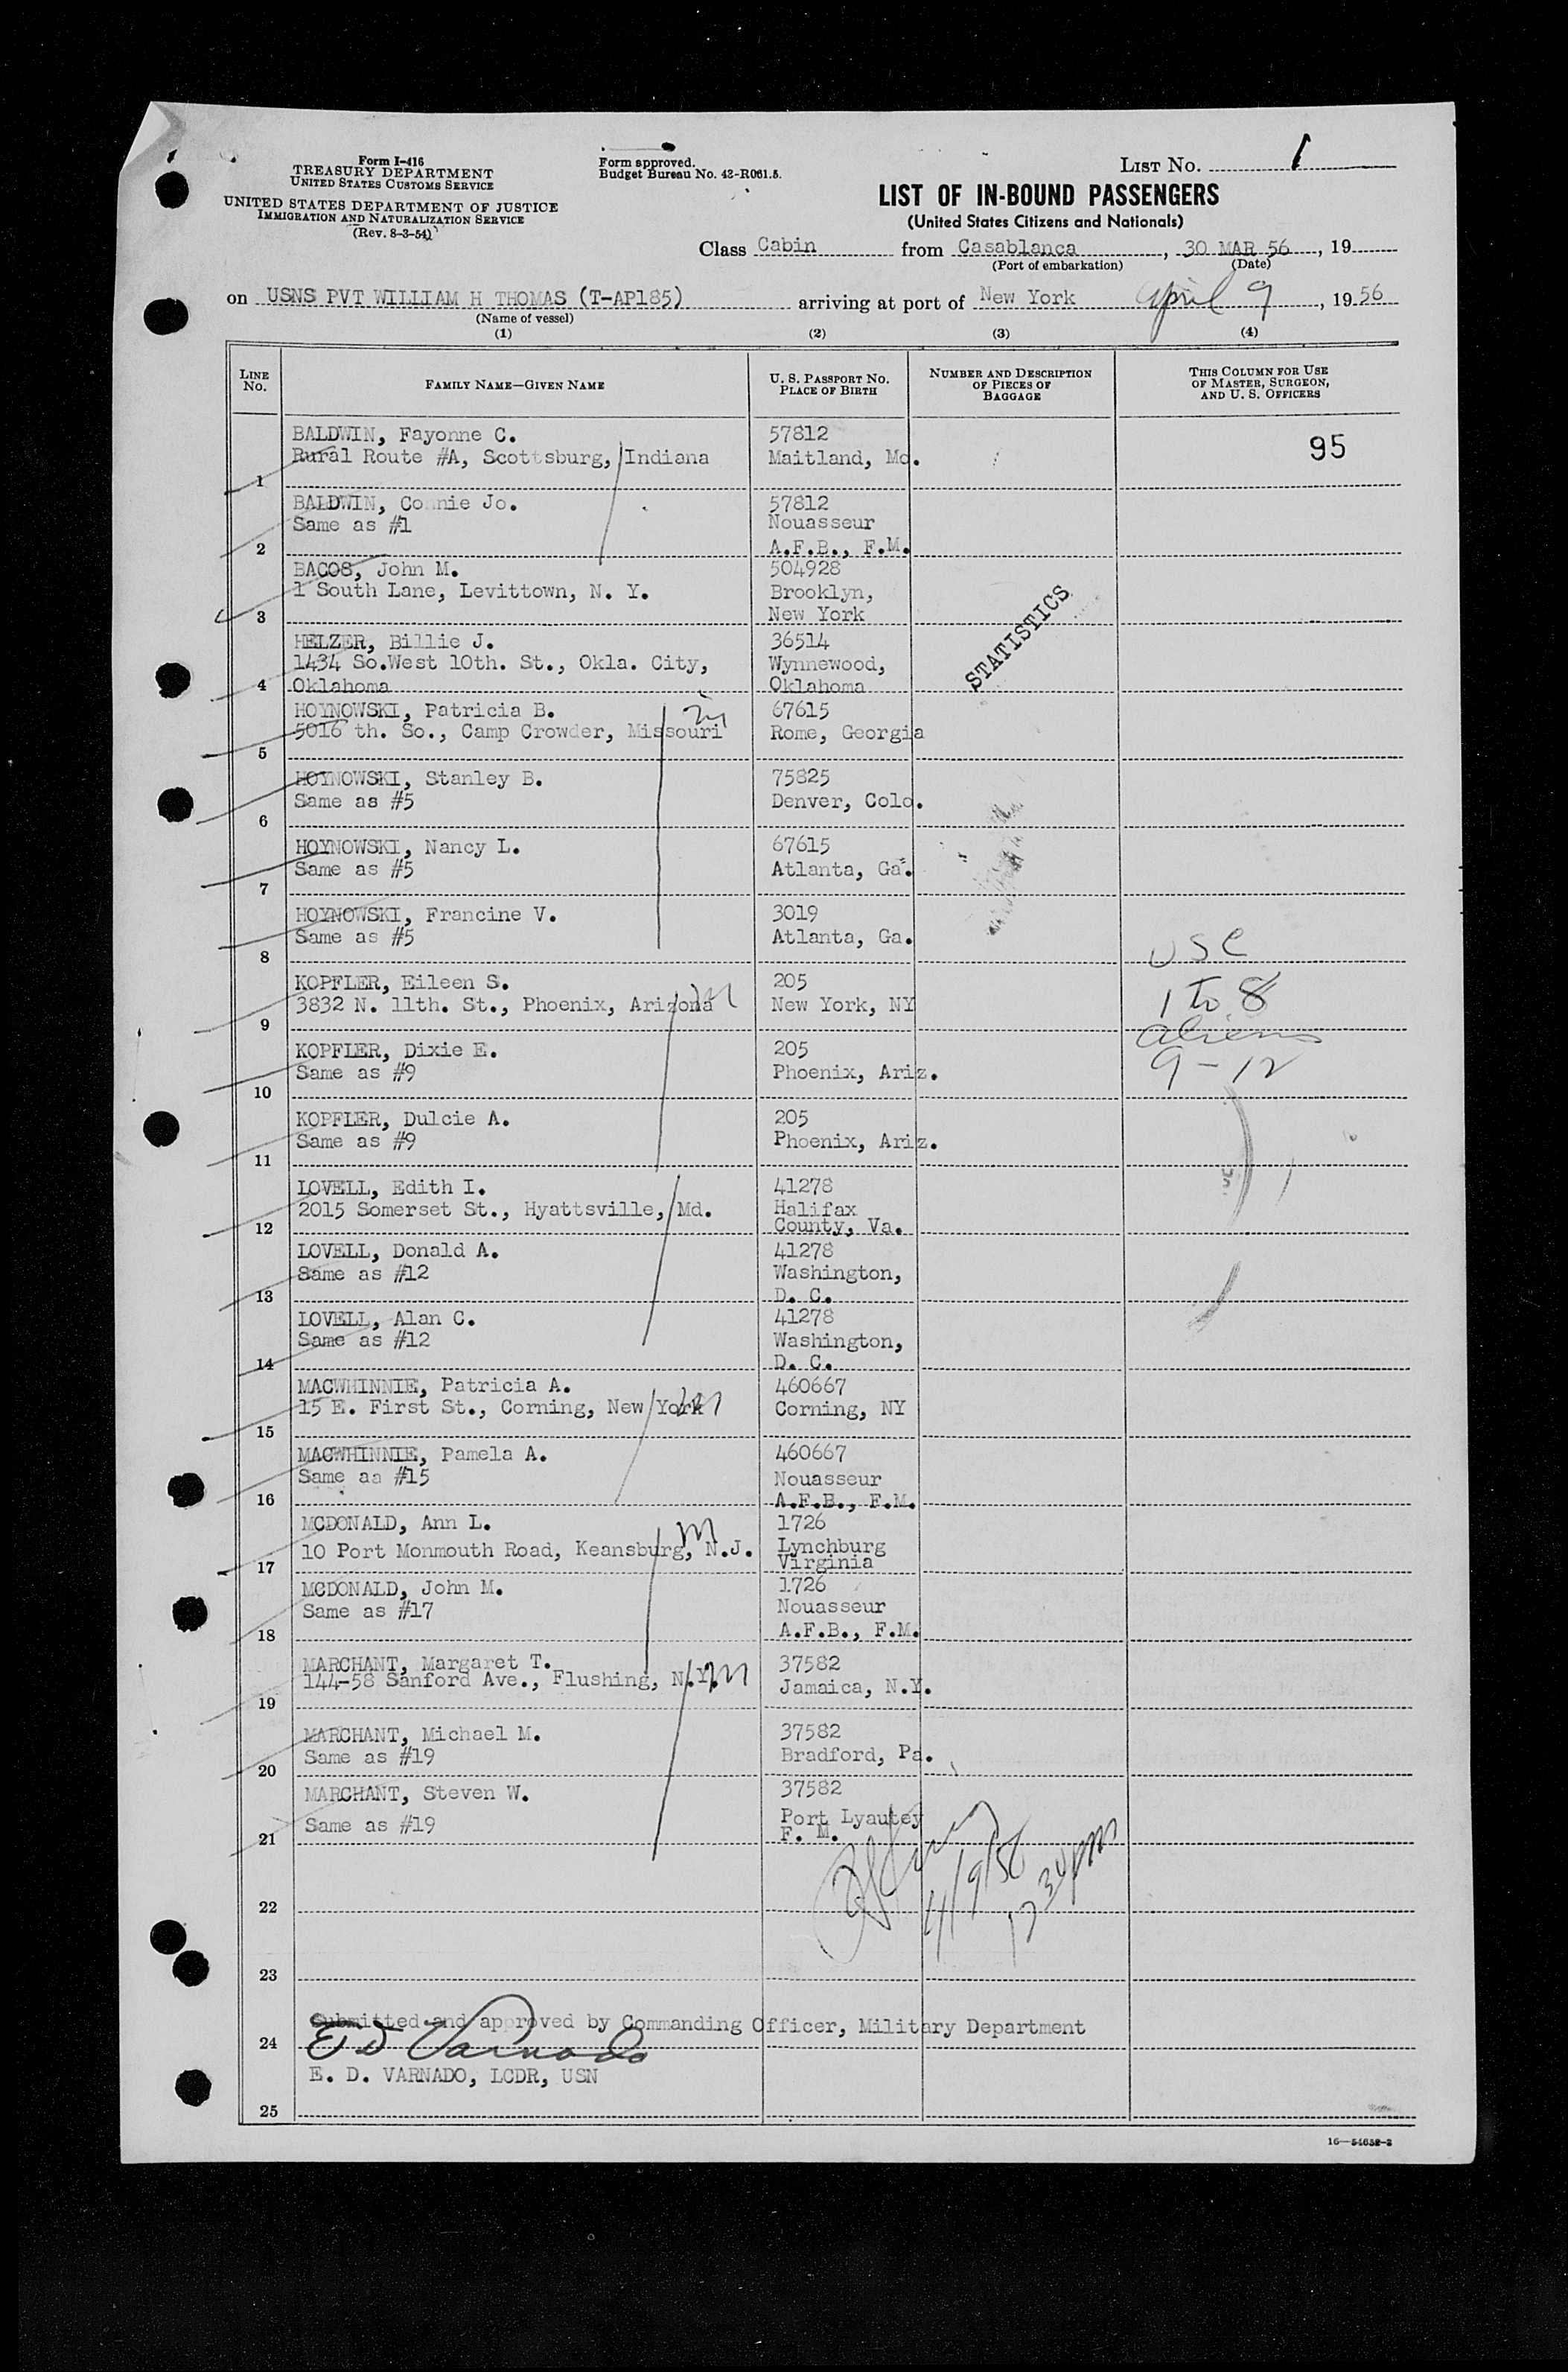 Form I-416
TREASURY DEPARTMENT
UNITED STATES CUSTOMS SERVICE
UNITED STATES DEPARTMENT OF JUSTICE
IMMIGRATION AND NATURALIZATION SERVICE
(Rev. 8-3-54)
Form approved.
Budget Bureau No. 43-R061.5.
LIST NO. 1
LIST OF IN-BOUND PASSENGERS
(United States Citizens and Nationals)
Class Cabin from Casablanca, 30 MAR 56, 19
(Port of embarkation) (Date)
on USNS PVT WILLIAM H THOMAS (T-AP185) arriving at port of New York April 9, 1956
(Name of vessel)
(1) (2) (3) (4)
LINE NO.
FAMILY NAME—GIVEN NAME
U. S. PASSPORT NO.
PLACE OF BIRTH
NUMBER AND DESCRIPTION
OF PIECES OF
BAGGAGE
THIS COLUMN FOR USE
OF MASTER, SURGEON,
AND U. S. OFFICERS
BALDWIN, Fayonne C. 57812
95
Rural Route #A, Scottsburg, Indiana Maitland, Mo.
1
BALDWIN, Connie Jo. 57812
Same as #1 Nouasseur
2 A.F.B., F.M.
BACOS, John M. 504928
1 South Lane, Levittown, N. Y. Brooklyn,
3 New York
STATISTICS
HELZER, Billie J. 36514
1434 So.West 10th. St., Okla. City, Wynnewood,
4 Oklahoma Oklahoma
HOYNOWSKI, Patricia B. m 67615
5016 th. So., Camp Crowder, Missouri Rome, Georgia
5
HOYNOWSKI, Stanley B. 75825
Same as #5 Denver, Colo.
6
HOYNOWSKI, Nancy L. 67615
Same as #5 Atlanta, Ga.
7
HOYNOWSKI, Francine V. 3019
Same as #5 Atlanta, Ga.
8 USC
KOPFLER, Eileen S. 205
3832 N. 11th. St., Phoenix, Arizona m New York, NY 1 to 8
9 aliens
KOPFLER, Dixie E. 205
Same as #9 Phoenix, Ariz. 9-12
10
KOPFLER, Dulcie A. 205
Same as #9 Phoenix, Ariz.
11
LOVELL, Edith I. 41278
2015 Somerset St., Hyattsville, Md. Halifax
12 County, Va.
LOVELL, Donald A. 41278
Same as #12 Washington,
13 D. C.
LOVELL, Alan C. 41278
Same as #12 Washington,
14 D. C.
MACWHINNIE, Patricia A. 460667
15 E. First St., Corning, New York m Corning, NY
15
MACWHINNIE, Pamela A. 460667
Same as #15 Nouasseur
16 A.F.B., F.M.
MCDONALD, Ann L. m 1726
10 Port Monmouth Road, Keansburg, N.J. Lynchburg
17 Virginia
MCDONALD, John M. 1726
Same as #17 Nouasseur
18 A.F.B., F.M.
MARCHANT, Margaret T. 37582
144-58 Sanford Ave., Flushing, N.Y. m Jamaica, N.Y.
19
MARCHANT, Michael M. 37582
Same as #19 Bradford, Pa.
20
MARCHANT, Steven W. 37582
Same as #19 Port Lyautey
21 F. M.
4/9/56
22
23
Submitted and approved by Commanding Officer, Military Department
24 E D Varnado
E. D. VARNADO, LCDR, USN
25
16—54652-2